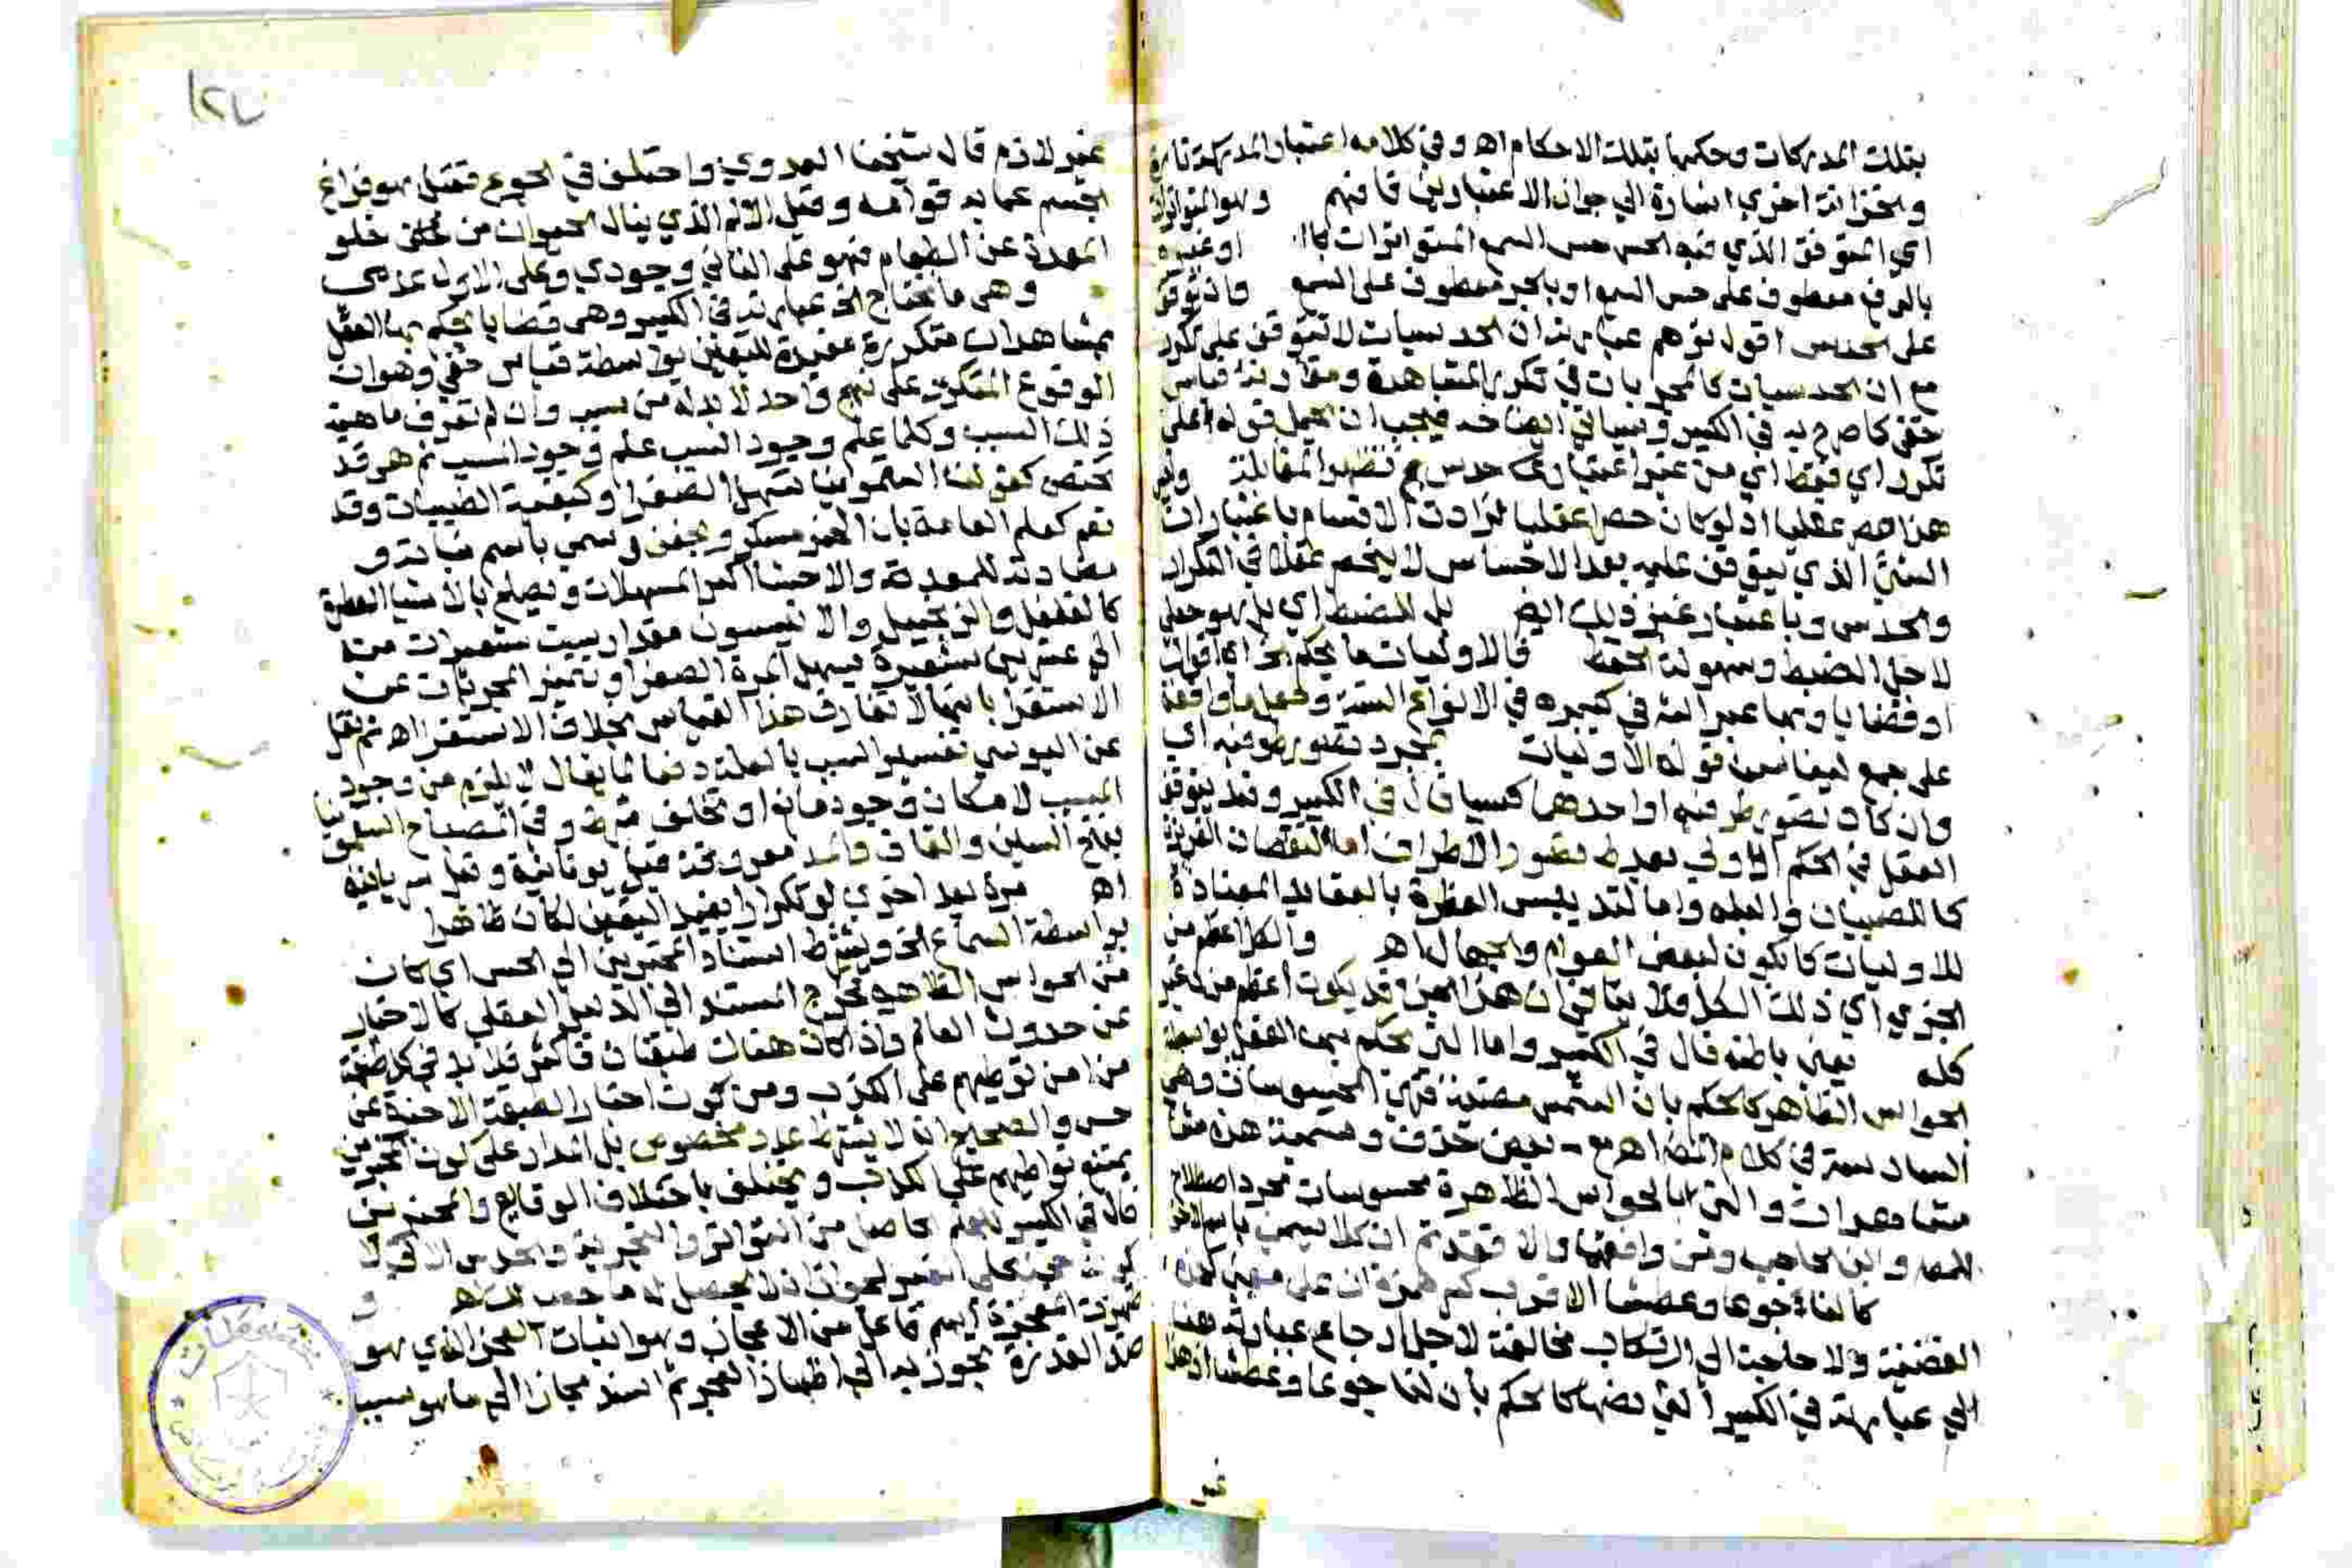 بتلك المدركات وحكمها بتلك الاحكام اه وفي كلامه اعتبار المدركة تارة
والخزانة اخرى اشارة الى جواز الاعتبارين فافهم وهو المتواترات
اي المتوقف الذي فيه الحس حس السمع المتواترات كما او غيره
بالرفع معطوف على حس السمع او بالجر معطوف على السمع وان توقف
على الحدس اقول توهم عبارته ان الحدسيات لا تتوقف على تكرر
مع ان الحدسيات كالمجربات في تكرر المشاهدة ومقارنة قياس
خفي كما صرح به في الكبير وسياتي ايضا فيجب ان يحمل قوله على
تكرر اي فقط اي من غير اعتبار حدس مع تظهر المقابلة وليس
هذا حصر عقليا اذ لو كان حصرا عقليا لزادت الاقسام باعتبار ان
الشئ الذي يتوقف عليه بعد الاحساس لا ينحصر عقلا في التكرار
والحدس وباعتبار غير ذلك ايضا بل للضبط اي بل هو جعلي
لاجل الضبط وسهولة الحفظ فالاوليات ما يحكم الخ اي قوات
او قضايا وبها عبر المص في كبيره في الانواع الستة ولعل ما واقعة
على جمع ليناسب قوله الاوليات بمجرد تصور طرفيه اي
وان كان تصور طرفيه او احدهما كسبيا قال في الكبير وقد يتوقف
العقل في الحكم الاولي بعد تصور الاطراف اما لنقصان الغريزة
كما للصبيان والبله واما لتدنيس الفطرة بالعقايد المضادة
للاوليات كما يكون لبعض العوام والجهال اه والكل اعظم من
الجزء اي ذلك الكل ولا ينافي ان هذا الجزء قد يكون اعظم من غير
كله يعني باطنه قال في الكبير واما التي يحكم بها العقل بواسطة
الحواس الظاهرة كالحكم بان الشمس مضيئة فهي المحسوسات وهي
السادسة في كلام المص اه مع بعض حذف وتسمية هذه
مشاهدات والتي بالحواس الظاهرة محسوسات مجرد اصطلاح
للمص وابن الحاجب ومن وافقهما والا فقد تقدم ان كلا يسمى باسم الاخر
كالفاة جوعا وعطشا الاقرب كسر همزة ان على
القضية ولا حاجة الى ارتكاب مخالفة لاجل ارجاع عبارته هنا
الى عبارته في الكبير التي نصها كالحكم بأن لنا جوعا وعطشا اذ هذا
غير
١٢٧
غير لازم قال شيخنا العدوي واختلف في الجوع فقيل هو فراغ
الجسم عما به قوامه وقيل الالم الذي ينال الحيوان من خلو
المعدة عن الطعام فهو على الثاني وجودي وعلى الاول عدمي
وهي ما يحتاج الخ عبارته في الكبير وهي قضايا يحكم بها العقل
بمشاهدات متكررة مفيدة لليقين بواسطة قياس خفي وهو ان
الوقوع المتكرر على نهج واحد لا بد له من سبب وان لم تعرف ماهية
ذلك السبب وكلما علم وجود السبب علم وجود المسبب ثم هي قد
تختص كقولنا السقمونيا تسهل الصفرا وكبقية الطبيات وقد
تعم كعلم العامة بان الخمر مسكر ويجفف ويسمى باسم نباته و
مضادته للمعدة والاحشا اكثر المسهلات ويصلح بالاشيا العطرة
كالفلفل والزنجبيل والانيسون مقدار ست شعيرات منه
الى عشرين شعيرة يسهل المرة الصفرا وتتميز المجربات عن
الاستقرا بانها لا تفارق هذا القياس بخلاف الاستقرا اه ثم نقل
عن اليوسي تفسير السبب بالعلة دفعا لما يقال لا يلزم من وجود
المسبب لامكان وجود مانع او تخلف شرط وفي المصباح السقمونيا
بفتح السين والقاف والمد معروفة قيل يونانية وقيل سريانية
اه مرة بعد اخرى لو تكرارا يفيد اليقين لكان ظاهرا
بواسطة السماع الخ ويشترط استناد المخبرين الى الحس اي كان
من الحواس الظاهرة فخرج المستند الى الدليل العقلي كالاخبار
عن حدوث العالم واذا كان هناك طبقات فاكثر فلا بد في كل طبقة
من امن تواطيهم على الكذب ومن كون اخبار الطبقة الاخيرة عن
حس والصحيح انه لا يشترط عدد مخصوص بل المدار على كون المخبرين
يمتنع تواطيهم على الكذب ويختلف باختلاف الوقايع والمخبرين
قال في الكبير العلم الحاصل من التواتر والتجربة والحدس لا
يكون حجة على الغير لجواز ان لا يحصل له ما حصل اه و
ظهرت المعجزة اسم فاعل من الاعجاز وهو اثبات العجز الذي هو
ضد القدرة تجوز به الى اظهار العجز ثم اسند مجازا الى ما هو سبب